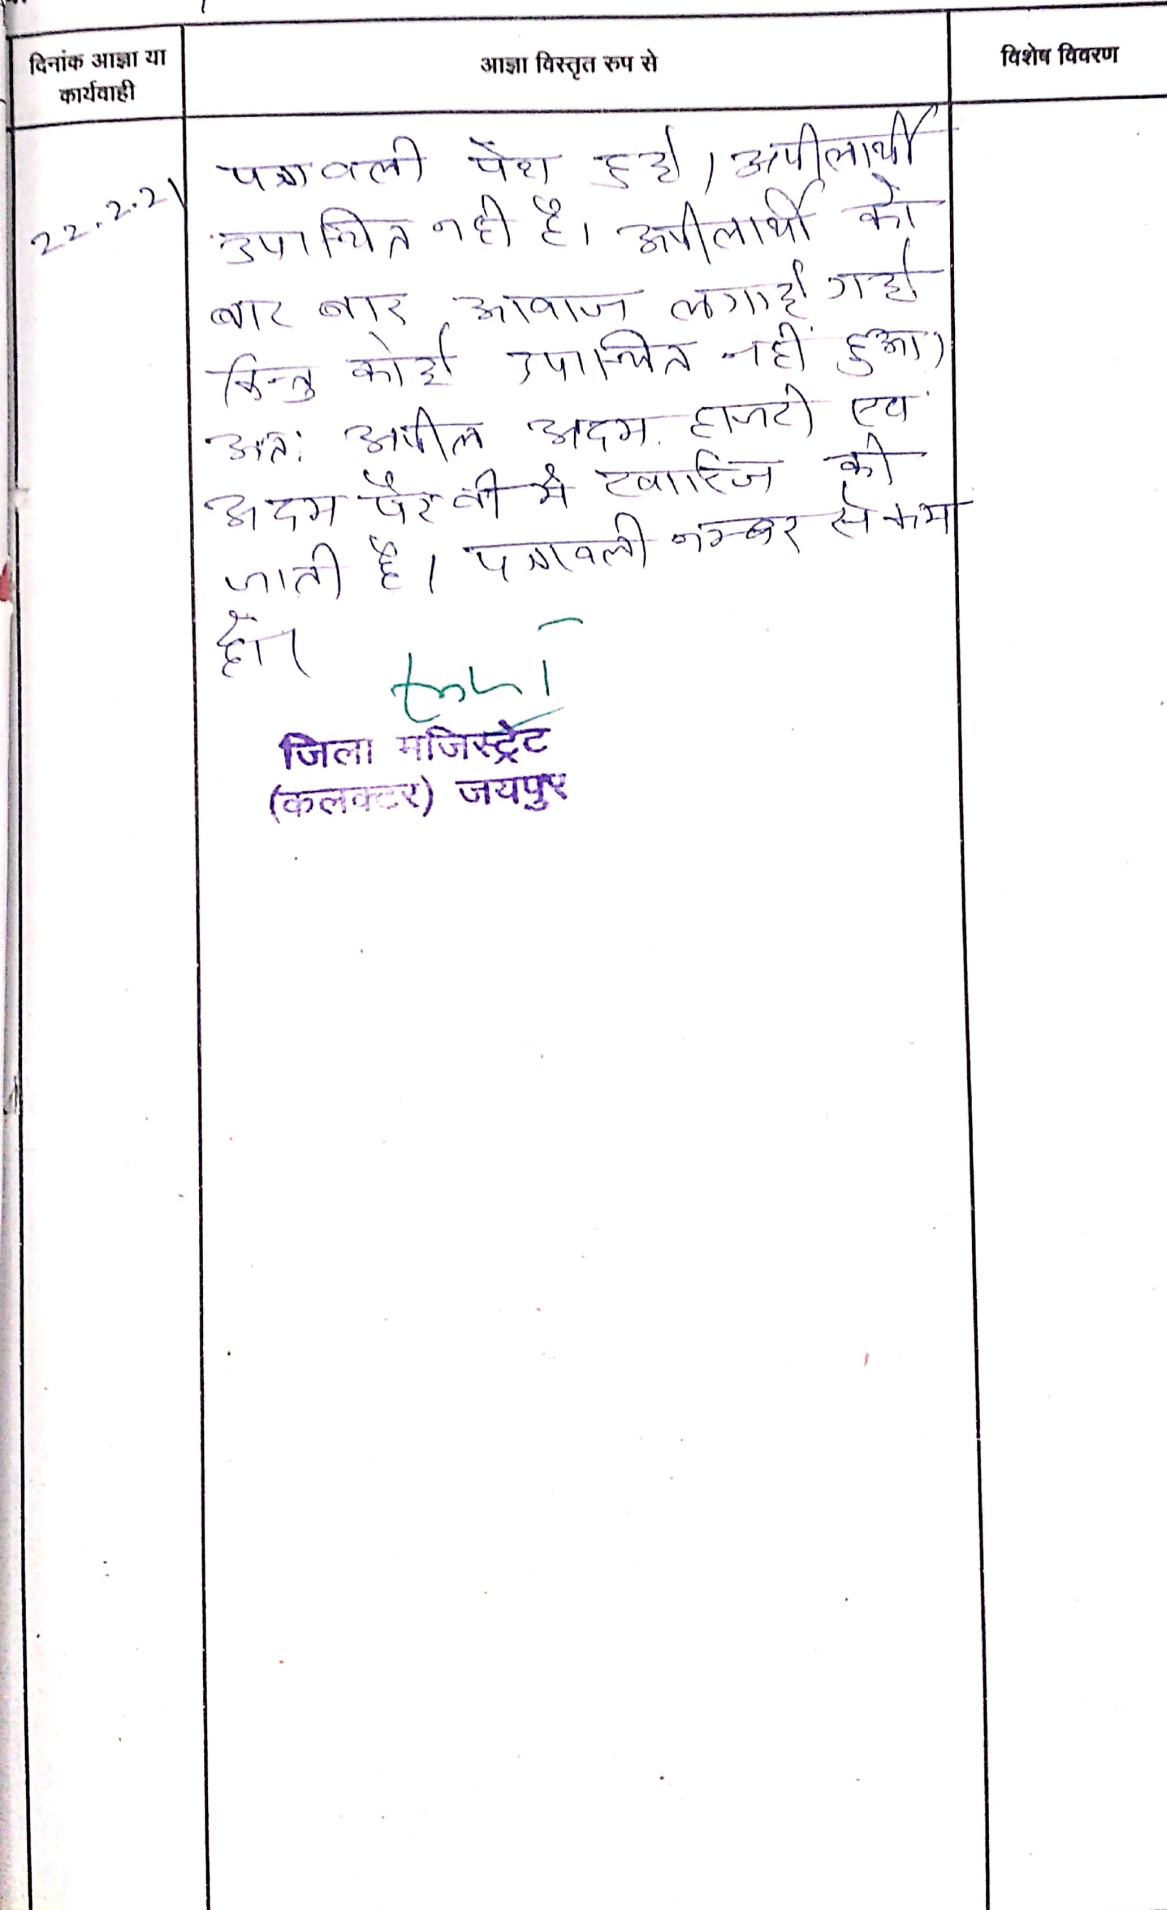 दिनांक आज्ञा या
कार्यवाही
आज्ञा विस्तृत रुप से
विशेष विवरण
22.2.21
पत्रावली पेश हुई। अपीलार्थी
उपस्थित नही है। अपीलार्थी को
बार बार आवाज लगाई गई
किन्तु कोई उपस्थित नहीं हुआ।
अतः अपील अदम हाजरी एवं
अदम पैरवी मे खारिज की
जाती है। पत्रावली नम्बर से कम
हो।
जिला मजिस्ट्रेट
(कलक्टर) जयपुर